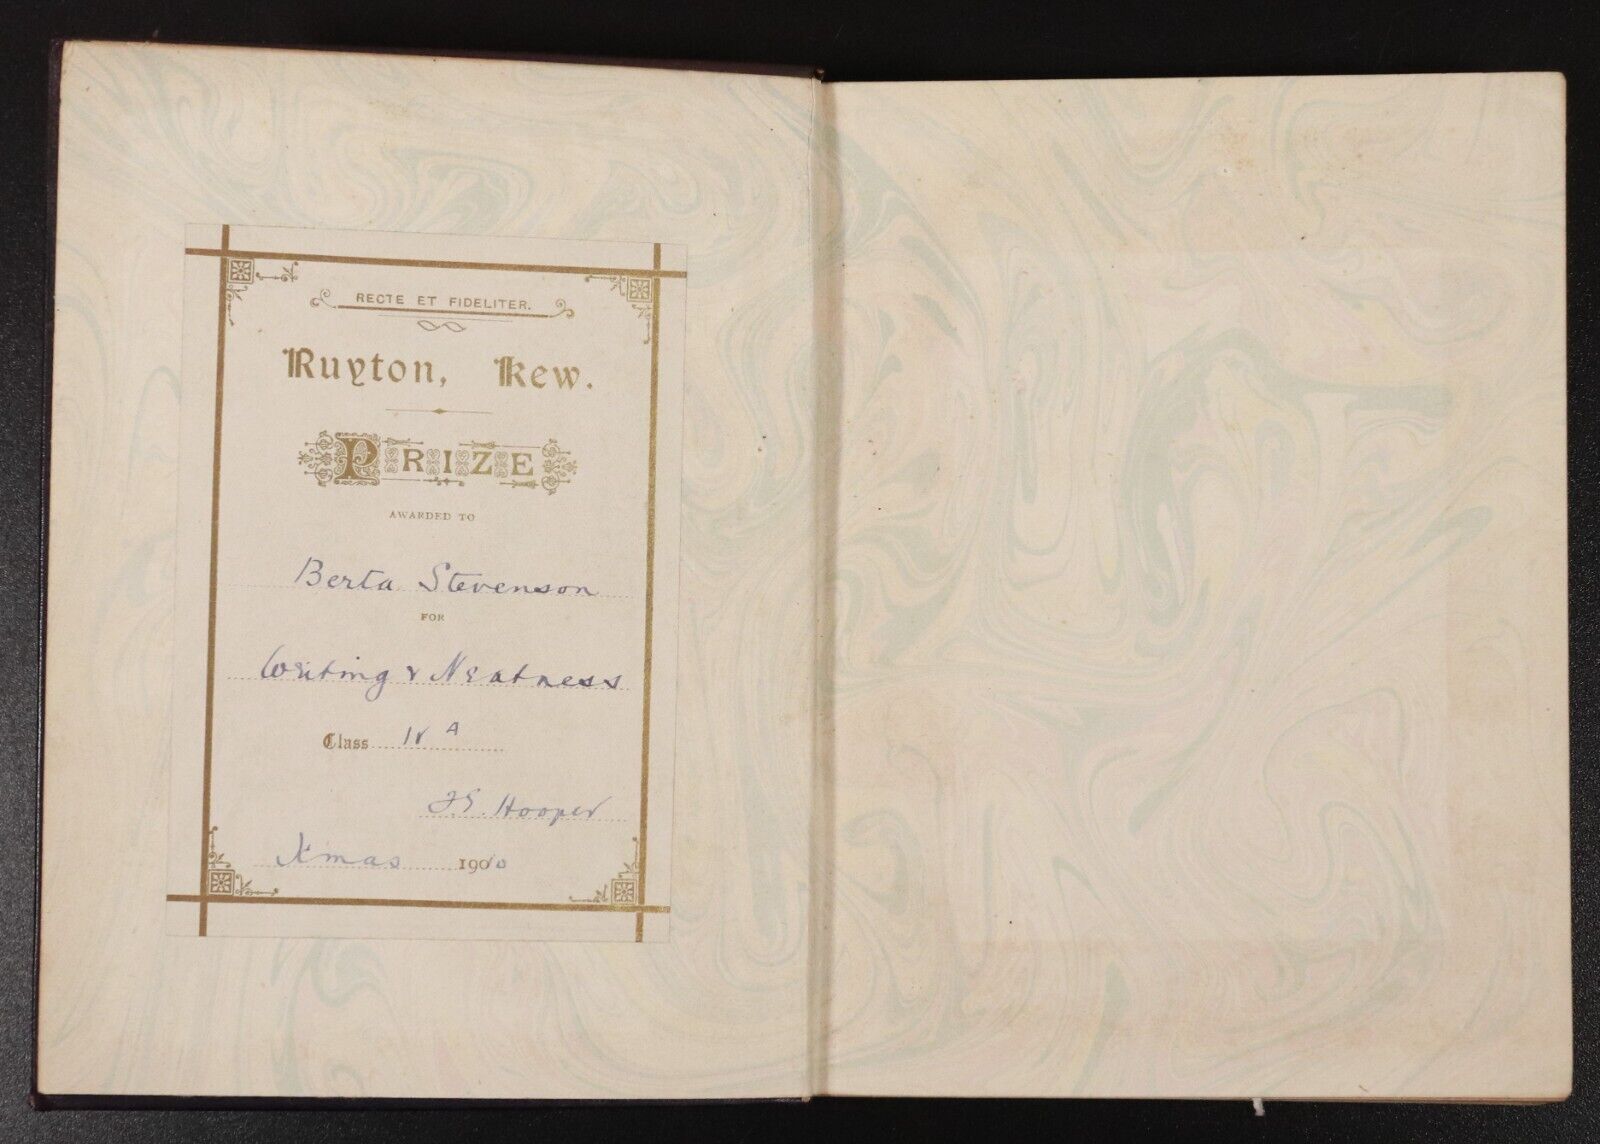 RECTE ET FIDELITER.
Ruyton, Kew.
PRIZE
AWARDED TO
Berta Stevenson
FOR
Writing & Neatness
Class IV A
Hooper
Xmas 1900